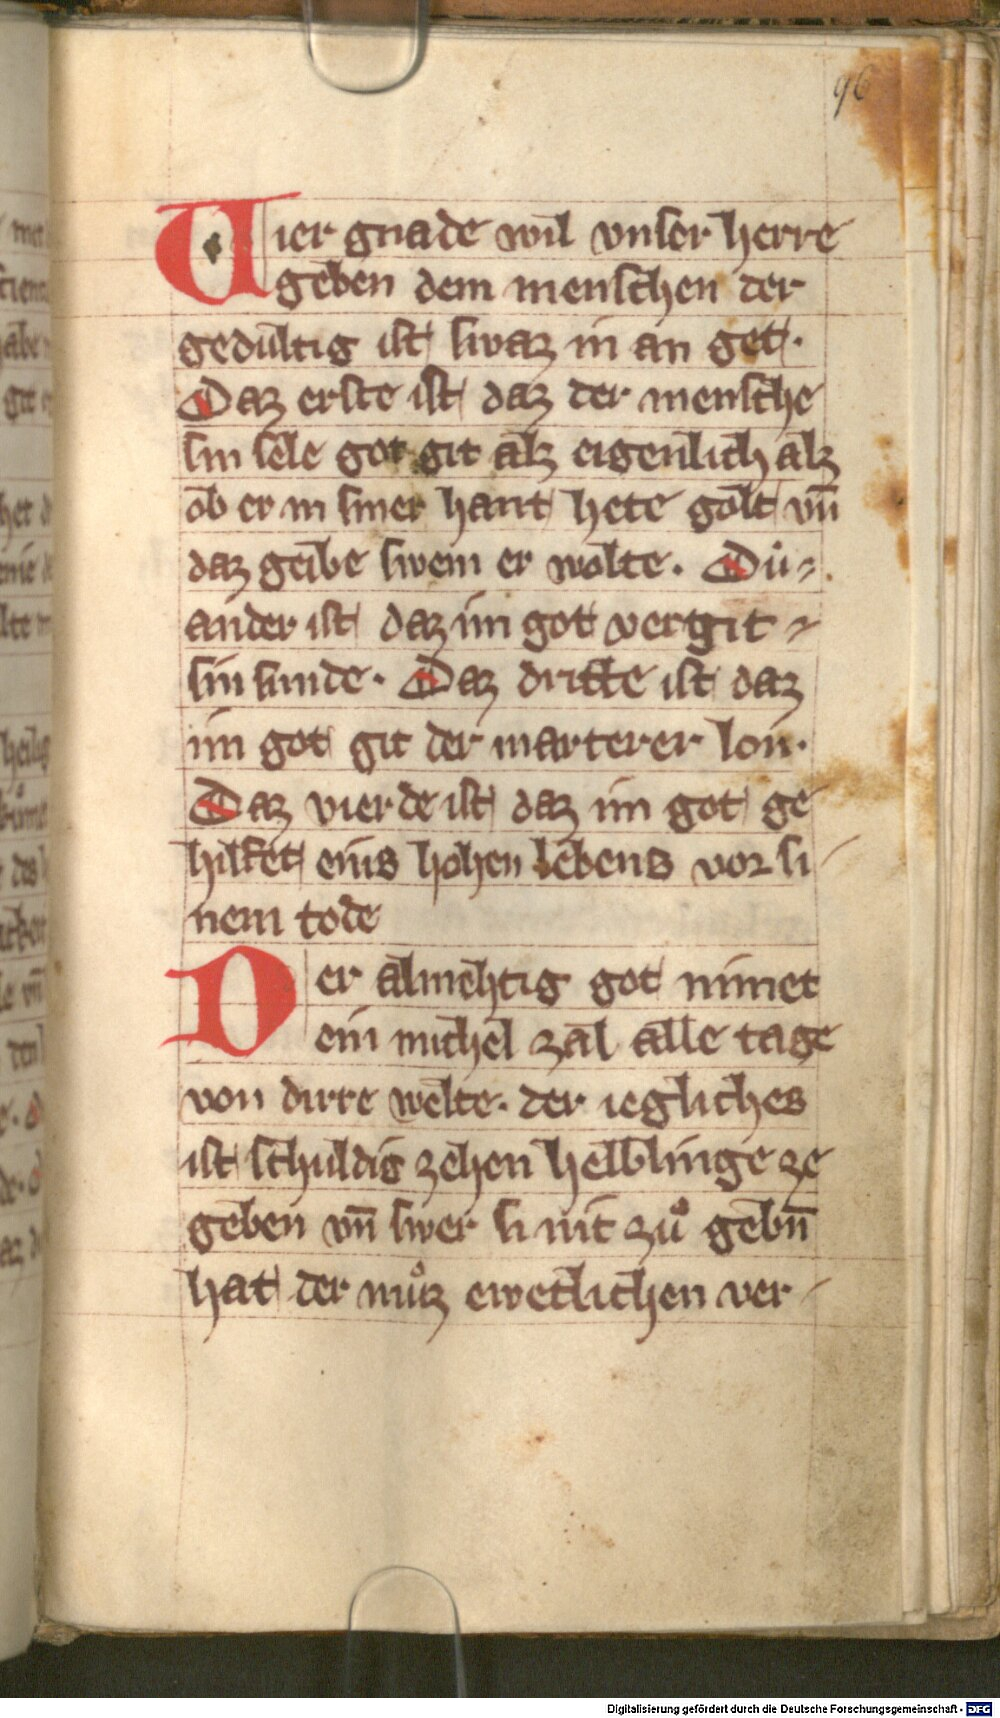 96
Vier gnade wil vnser herre
geben dem menschen der
gedultig ist swaz in an get.
Daz erste ist daz der mensche
sin sele got git alz eigenlich alz
ob er in siner hant hete golt vn̄
daz geibe swem er wolte. Dů
ander ist daz im got vergit
sin sunde. Daz dritte ist daz
im got git der marterer lon.
Daz vierde ist daz im got ge
hilfet eins hohen lebens vor si
nem tode
Der almehtig got nimet
ein michel zal alle tage
von dirre welte. der iegliches
ist schuldig zehen helblinge ze
geben vn̄ swer si nit zů gebn̄
hat der můz ewetlichen ver
Digitalisierung gefördert durch die Deutsche Forschungsgemeinschaft - DFG